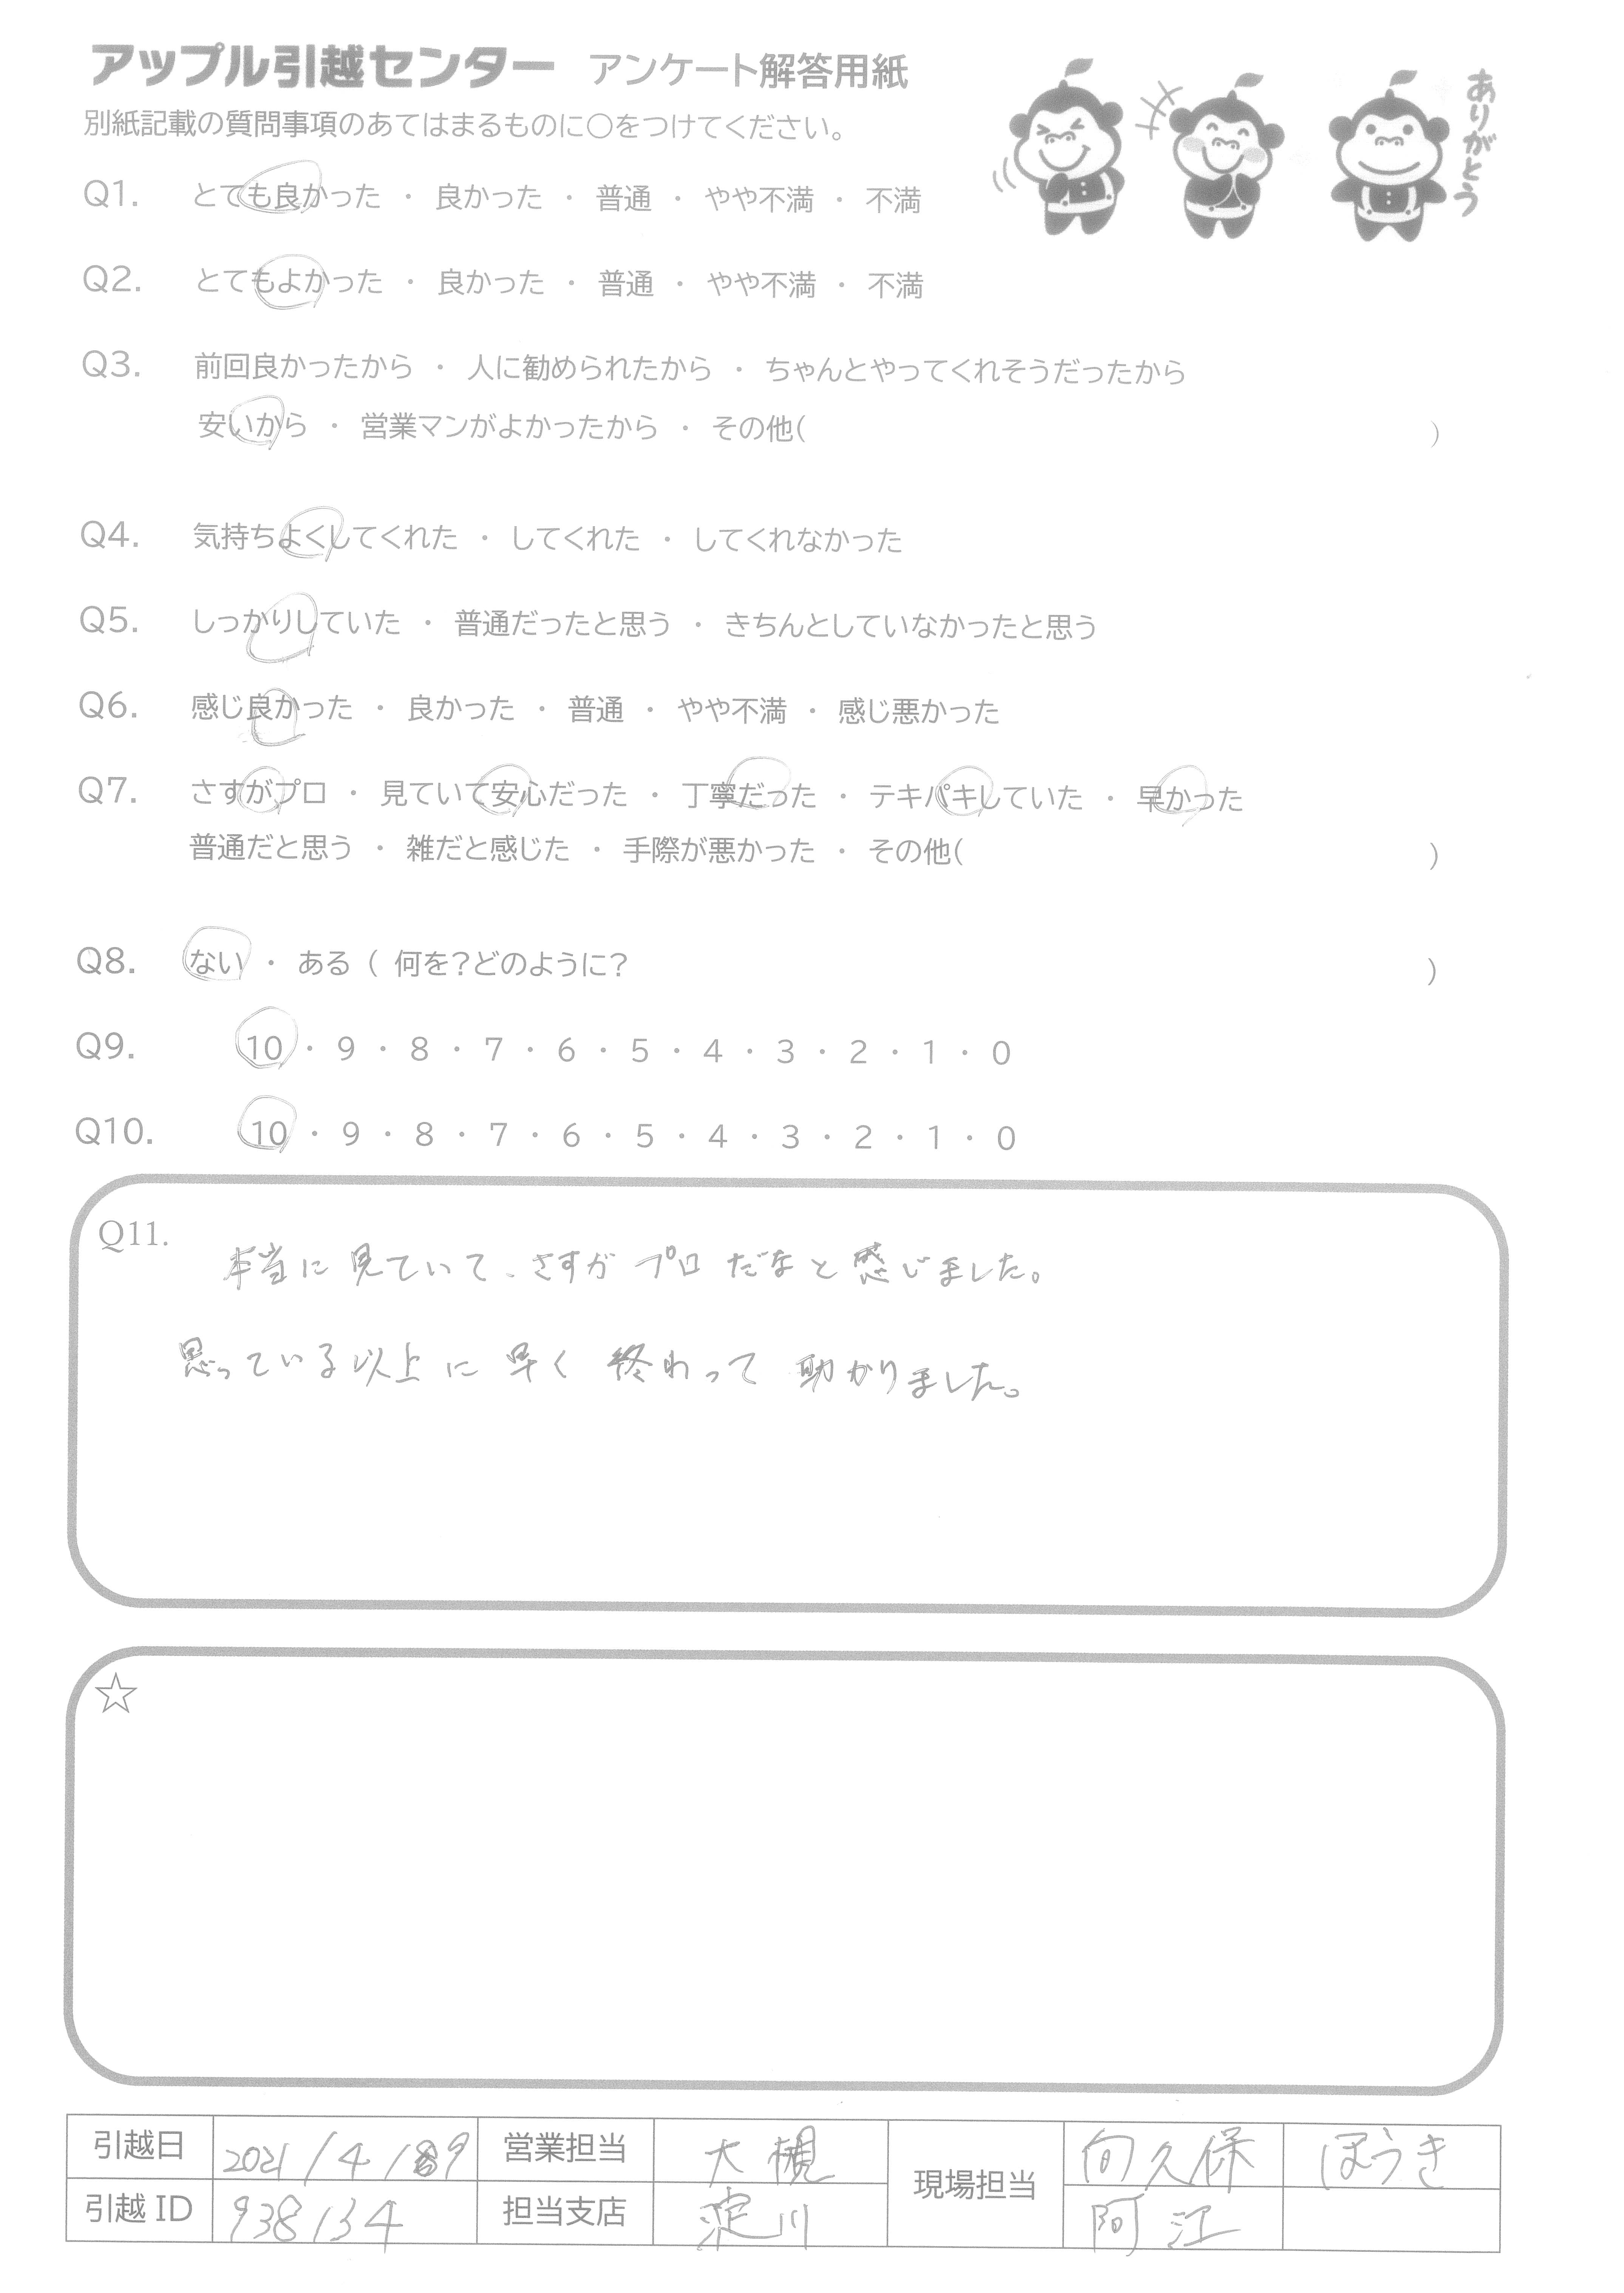 アップル引越センター アンケート解答用紙
ありがとう
別紙記載の質問事項のあてはまるものに○をつけてください。
Q1. とても良かった ・ 良かった ・ 普通 ・ やや不満 ・ 不満
Q2. とてもよかった ・ 良かった ・ 普通 ・ やや不満 ・ 不満
Q3. 前回良かったから ・ 人に勧められたから ・ ちゃんとやってくれそうだったから
安いから ・ 営業マンがよかったから ・ その他( )
Q4. 気持ちよくしてくれた ・ してくれた ・ してくれなかった
Q5. しっかりしていた ・ 普通だったと思う ・ きちんとしていなかったと思う
Q6. 感じ良かった ・ 良かった ・ 普通 ・ やや不満 ・ 感じ悪かった
Q7. さすがプロ ・ 見ていて安心だった ・ 丁寧だった ・ テキパキしていた ・ 早かった
普通だと思う ・ 雑だと感じた ・ 手際が悪かった ・ その他( )
Q8. ない ・ ある ( 何を?どのように? )
Q9. 10 ・ 9 ・ 8 ・ 7 ・ 6 ・ 5 ・ 4 ・ 3 ・ 2 ・ 1 ・ 0
Q10. 10 ・ 9 ・ 8 ・ 7 ・ 6 ・ 5 ・ 4 ・ 3 ・ 2 ・ 1 ・ 0
Q11.
本当に見ていて、さすがプロだなと感じました。
思っている以上に早く終わって助かりました。
☆
引越日 2021/4/9 営業担当 大槻 現場担当 向久保 ほうき
引越ID 938134 担当支店 淀川 阿江